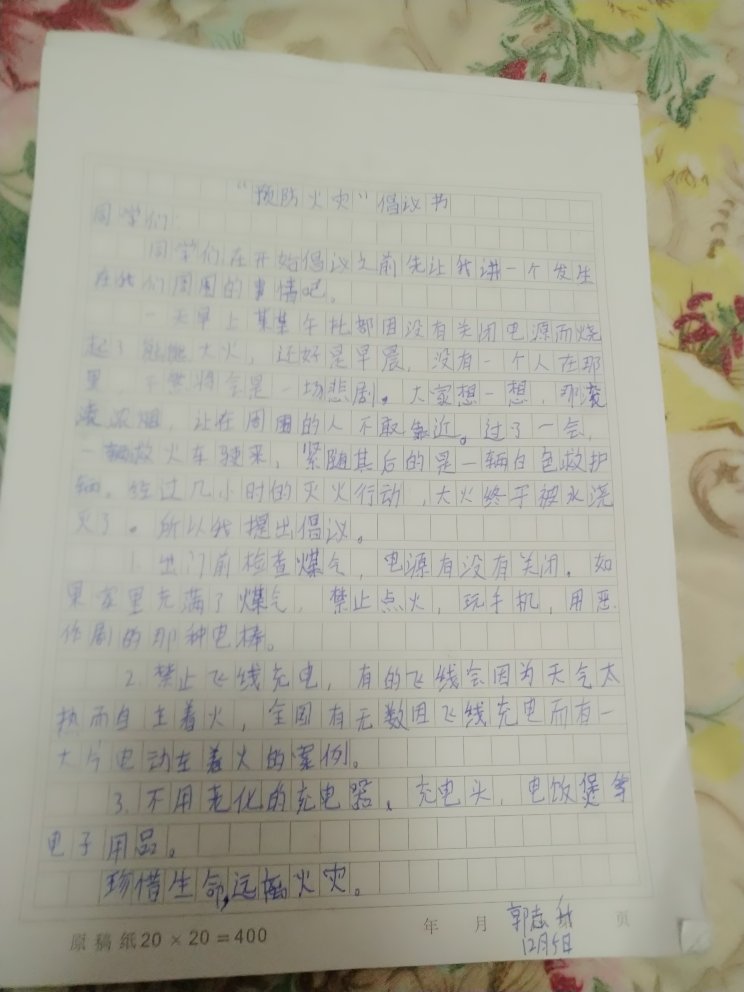 “预防火灾”倡议书
同学们:
同学们在开始倡议之前先让我讲一个发生
在我们周围的事情吧。
一天早上某某午托部因没有关闭电源而烧
起了熊熊大火，还好是早晨，没有一个人在那
里，不然将会是一场悲剧。大家想一想，那滚
滚浓烟，让在周围的人不敢靠近。过了一会，
一辆救火车驶来，紧随其后的是一辆白色救护
辆。经过几小时的灭火行动，大火终于被水浇
灭了。所以我提出倡议。
1.出门前检查煤气，电源有没有关闭。如
果家里充满了煤气，禁止点火，玩手机，用恶
作剧的那种电棒。
2.禁止飞线充电，有的飞线会因为天气太
热而自主着火，全国有无数因飞线充电而有一
大片电动车着火的案例。
3.不用老化的充电器、充电头，电饭煲等
电子用品。
珍惜生命,远离火灾。
原稿纸20×20=400
年 月 郭志 页
12月5日